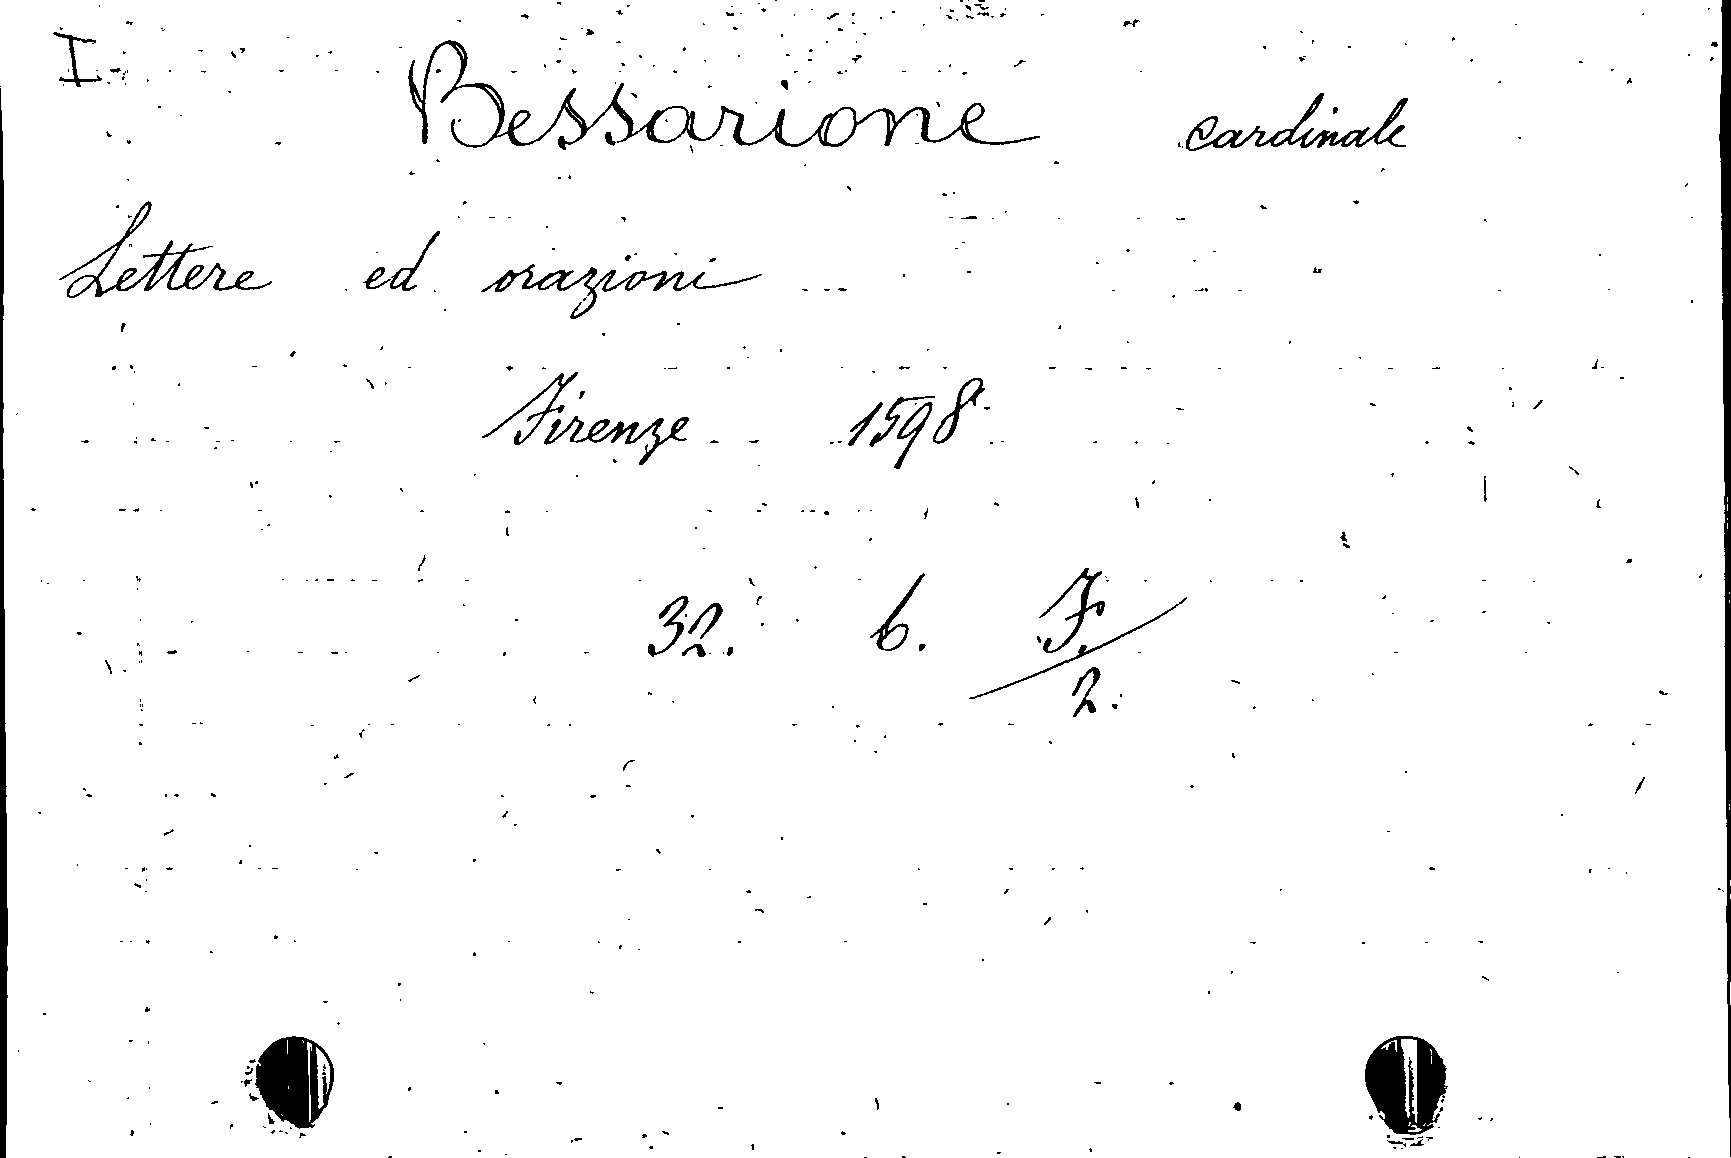 I
Bessarione cardinale
Lettere ed orazioni
Firenze 1598
32. 6. F.
2.